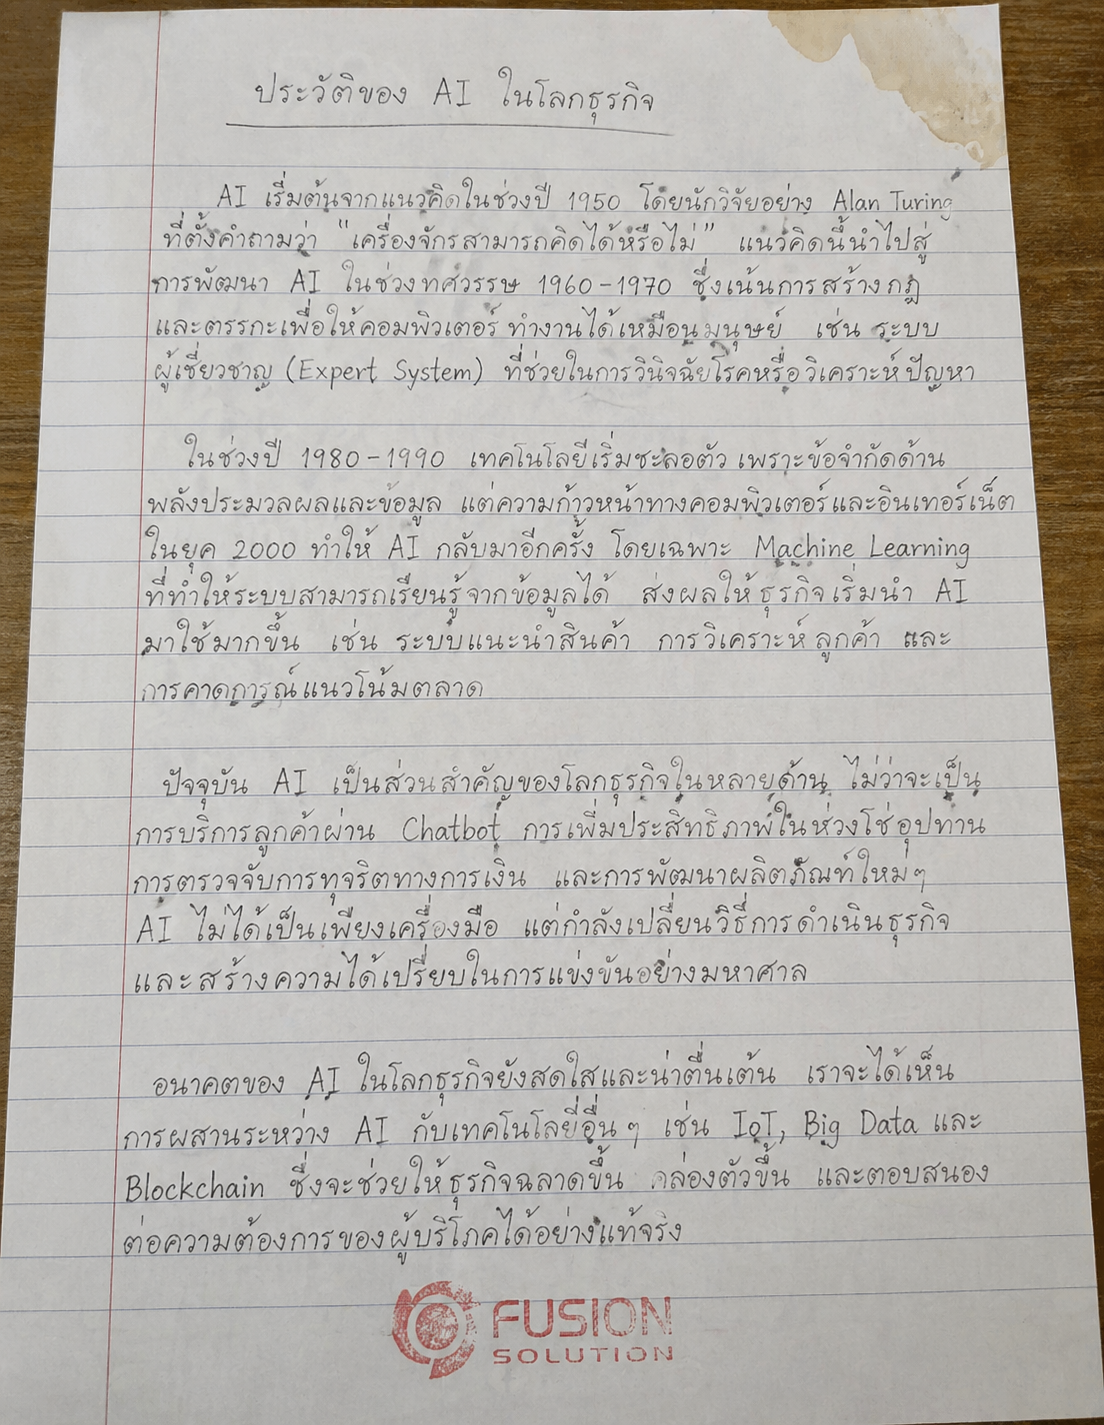 ประวัติของ AI ในโลกธุรกิจ
AI เริ่มต้นจากแนวคิดในช่วงปี 1950 โดยนักวิจัยอย่าง Alan Turing
ที่ตั้งคำถามว่า "เครื่องจักรสามารถคิดได้หรือไม่" แนวคิดนี้นำไปสู่
การพัฒนา AI ในช่วงทศวรรษ 1960-1970 ซึ่งเน้นการสร้างกฎ
และตรรกะเพื่อให้คอมพิวเตอร์ทำงานได้เหมือนมนุษย์ เช่น ระบบ
ผู้เชี่ยวชาญ (Expert System) ที่ช่วยในการวินิจฉัยโรคหรือวิเคราะห์ปัญหา
ในช่วงปี 1980-1990 เทคโนโลยีเริ่มชะลอตัว เพราะข้อจำกัดด้าน
พลังประมวลผลและข้อมูล แต่ความก้าวหน้าทางคอมพิวเตอร์และอินเทอร์เน็ต
ในยุค 2000 ทำให้ AI กลับมาอีกครั้ง โดยเฉพาะ Machine Learning
ที่ทำให้ระบบสามารถเรียนรู้จากข้อมูลได้ ส่งผลให้ธุรกิจเริ่มนำ AI
มาใช้มากขึ้น เช่น ระบบแนะนำสินค้า การวิเคราะห์ลูกค้า และ
การคาดการณ์แนวโน้มตลาด
ปัจจุบัน AI เป็นส่วนสำคัญของโลกธุรกิจในหลายด้าน ไม่ว่าจะเป็น
การบริการลูกค้าผ่าน Chatbot การเพิ่มประสิทธิภาพในห่วงโซ่อุปทาน
การตรวจจับการทุจริตทางการเงิน และการพัฒนาผลิตภัณฑ์ใหม่ๆ
AI ไม่ได้เป็นเพียงเครื่องมือ แต่กำลังเปลี่ยนวิธีการดำเนินธุรกิจ
และสร้างความได้เปรียบในการแข่งขันอย่างมหาศาล
อนาคตของ AI ในโลกธุรกิจยังสดใสและน่าตื่นเต้น เราจะได้เห็น
การผสานระหว่าง AI กับเทคโนโลยีอื่นๆ เช่น IoT, Big Data และ
Blockchain ซึ่งจะช่วยให้ธุรกิจฉลาดขึ้น คล่องตัวขึ้น และตอบสนอง
ต่อความต้องการของผู้บริโภคได้อย่างแท้จริง
FUSION
SOLUTION